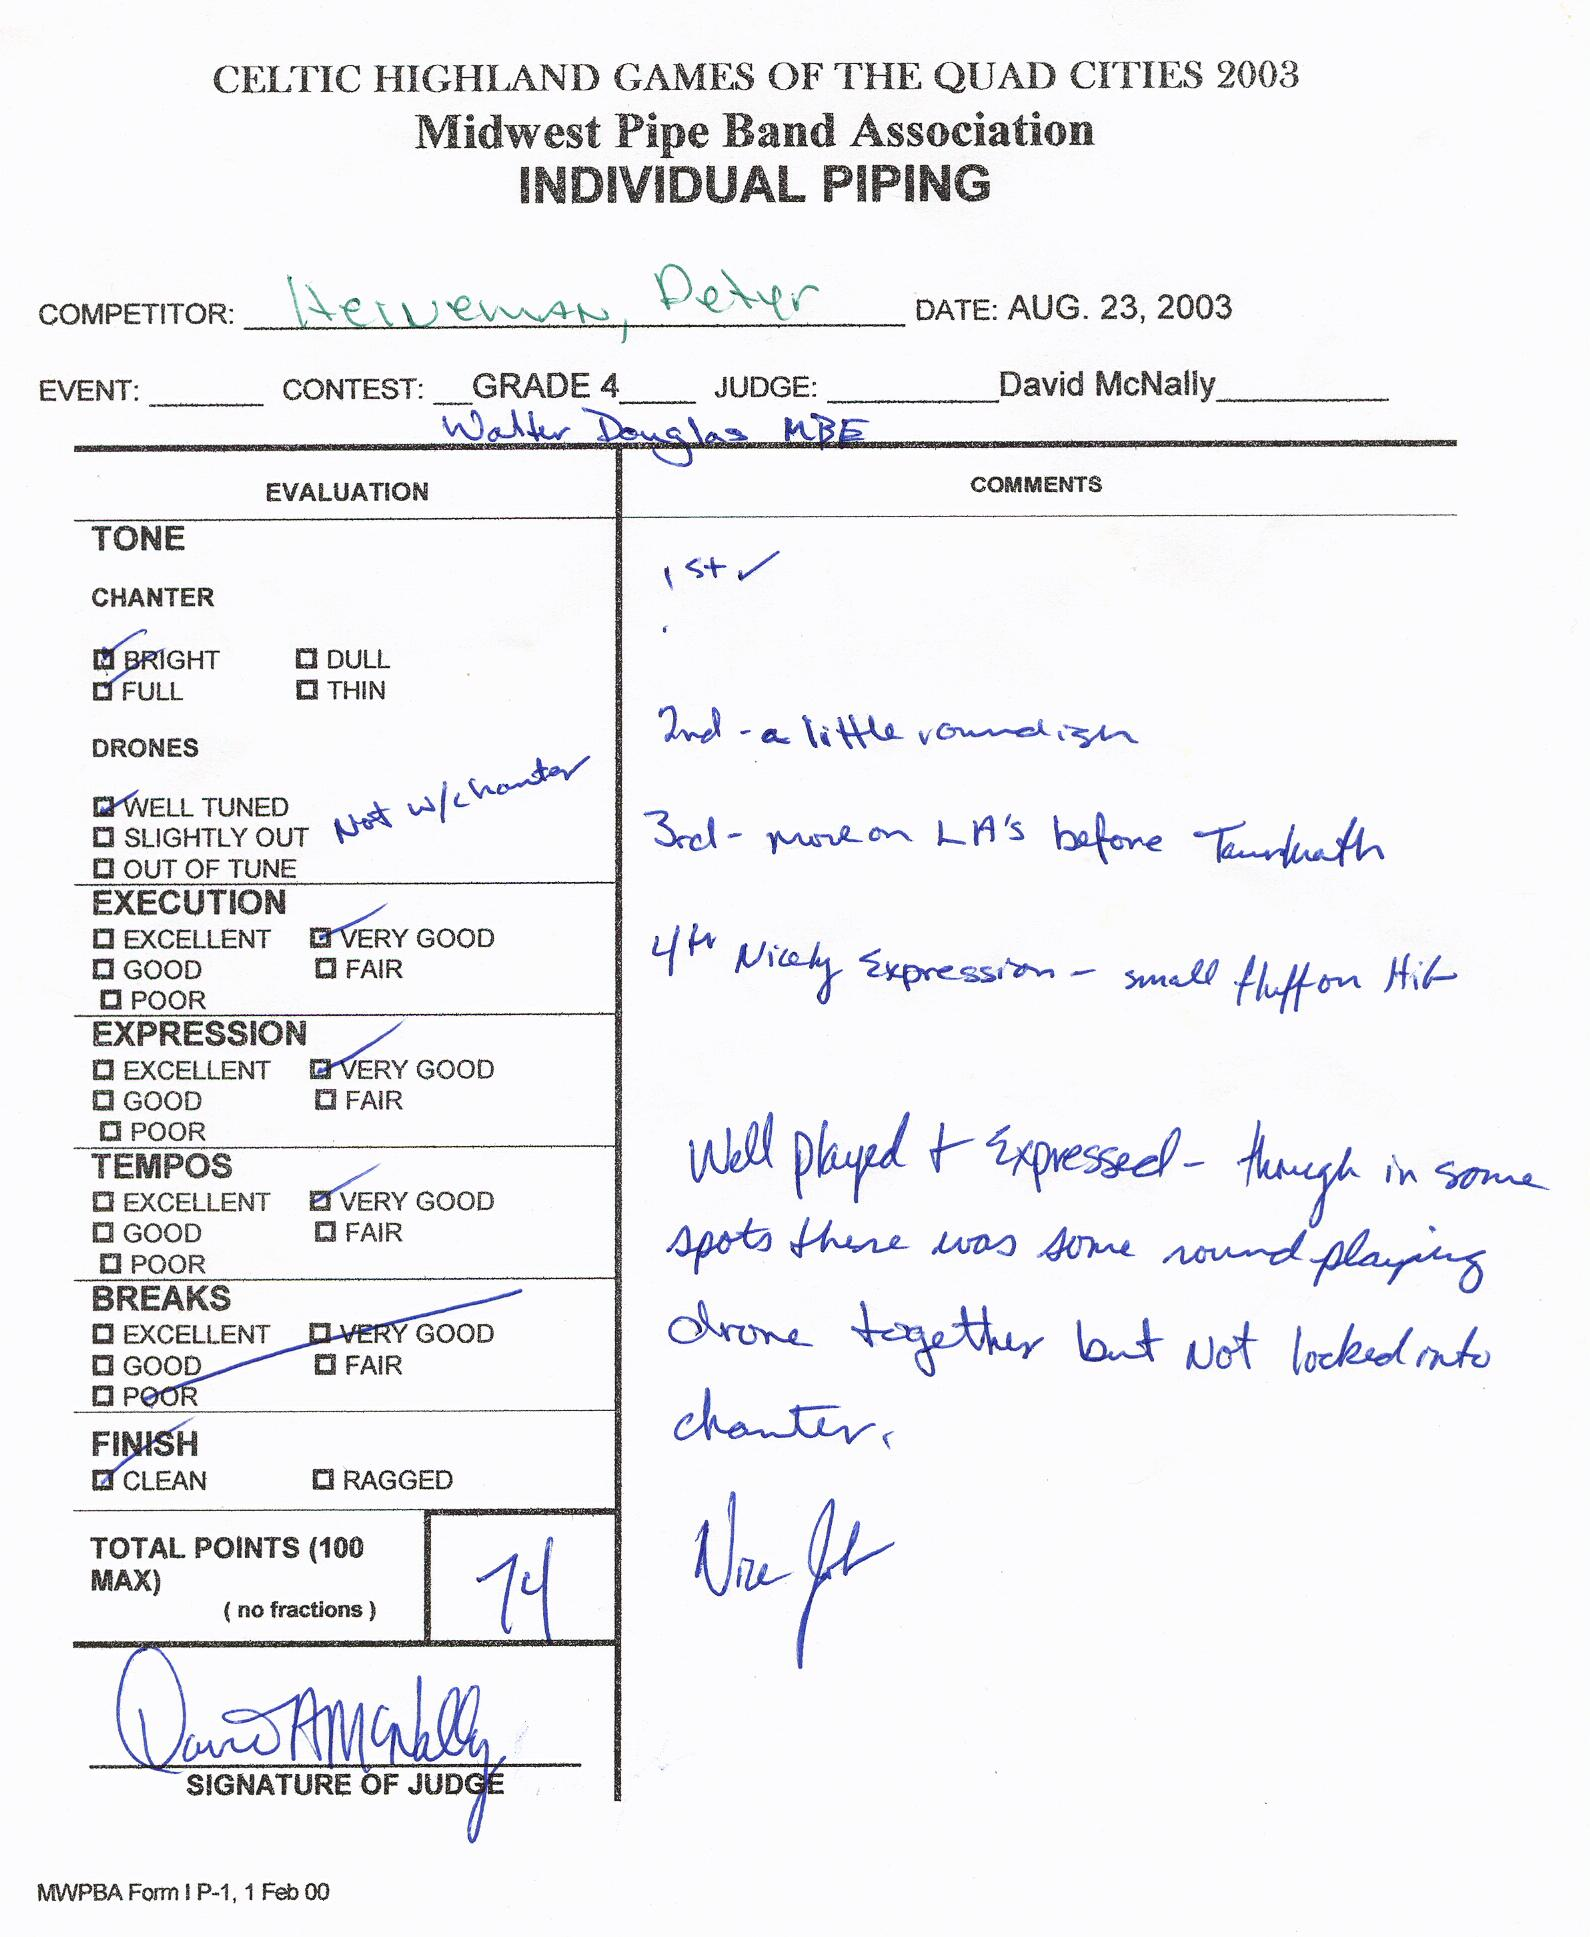 CELTIC HIGHLAND GAMES OF THE QUAD CITIES 2003
Midwest Pipe Band Association
INDIVIDUAL PIPING
COMPETITOR: Heineman, Peter DATE: AUG. 23, 2003
EVENT: CONTEST: GRADE 4 JUDGE: David McNally
Walter Douglas MBE
EVALUATION
TONE
CHANTER
BRIGHT DULL
FULL THIN
DRONES
WELL TUNED
Not w/chanter
SLIGHTLY OUT
OUT OF TUNE
EXECUTION
EXCELLENT VERY GOOD
GOOD FAIR
POOR
EXPRESSION
EXCELLENT VERY GOOD
GOOD FAIR
POOR
TEMPOS
EXCELLENT VERY GOOD
GOOD FAIR
POOR
BREAKS
EXCELLENT VERY GOOD
GOOD FAIR
POOR
FINISH
CLEAN RAGGED
TOTAL POINTS (100
MAX)
( no fractions )
74
David A McNally
SIGNATURE OF JUDGE
COMMENTS
1st ✓
2nd - a little roundish
3rd - more on LA's before
4th Nicely Expression - small fluff on
Well played + Expressed - though in some
spots there was some round playing
drone together but Not locked into
chanter.
Nice Job
MWPBA Form I P-1, 1 Feb 00